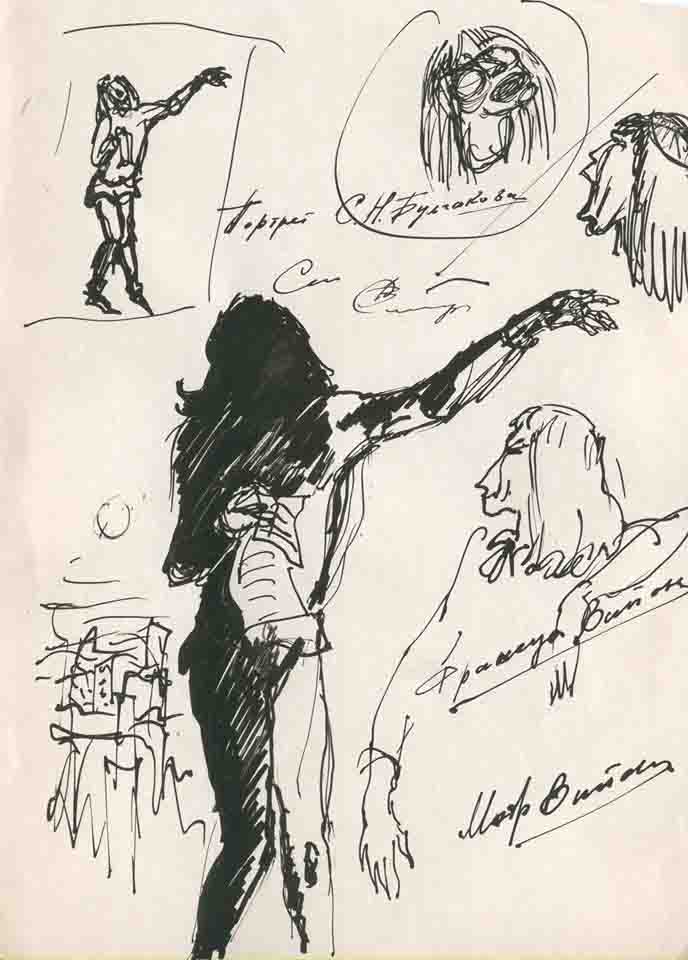 Портрет С.Н. Булгакова
Франсуа Вийон
Мэтр Вийон